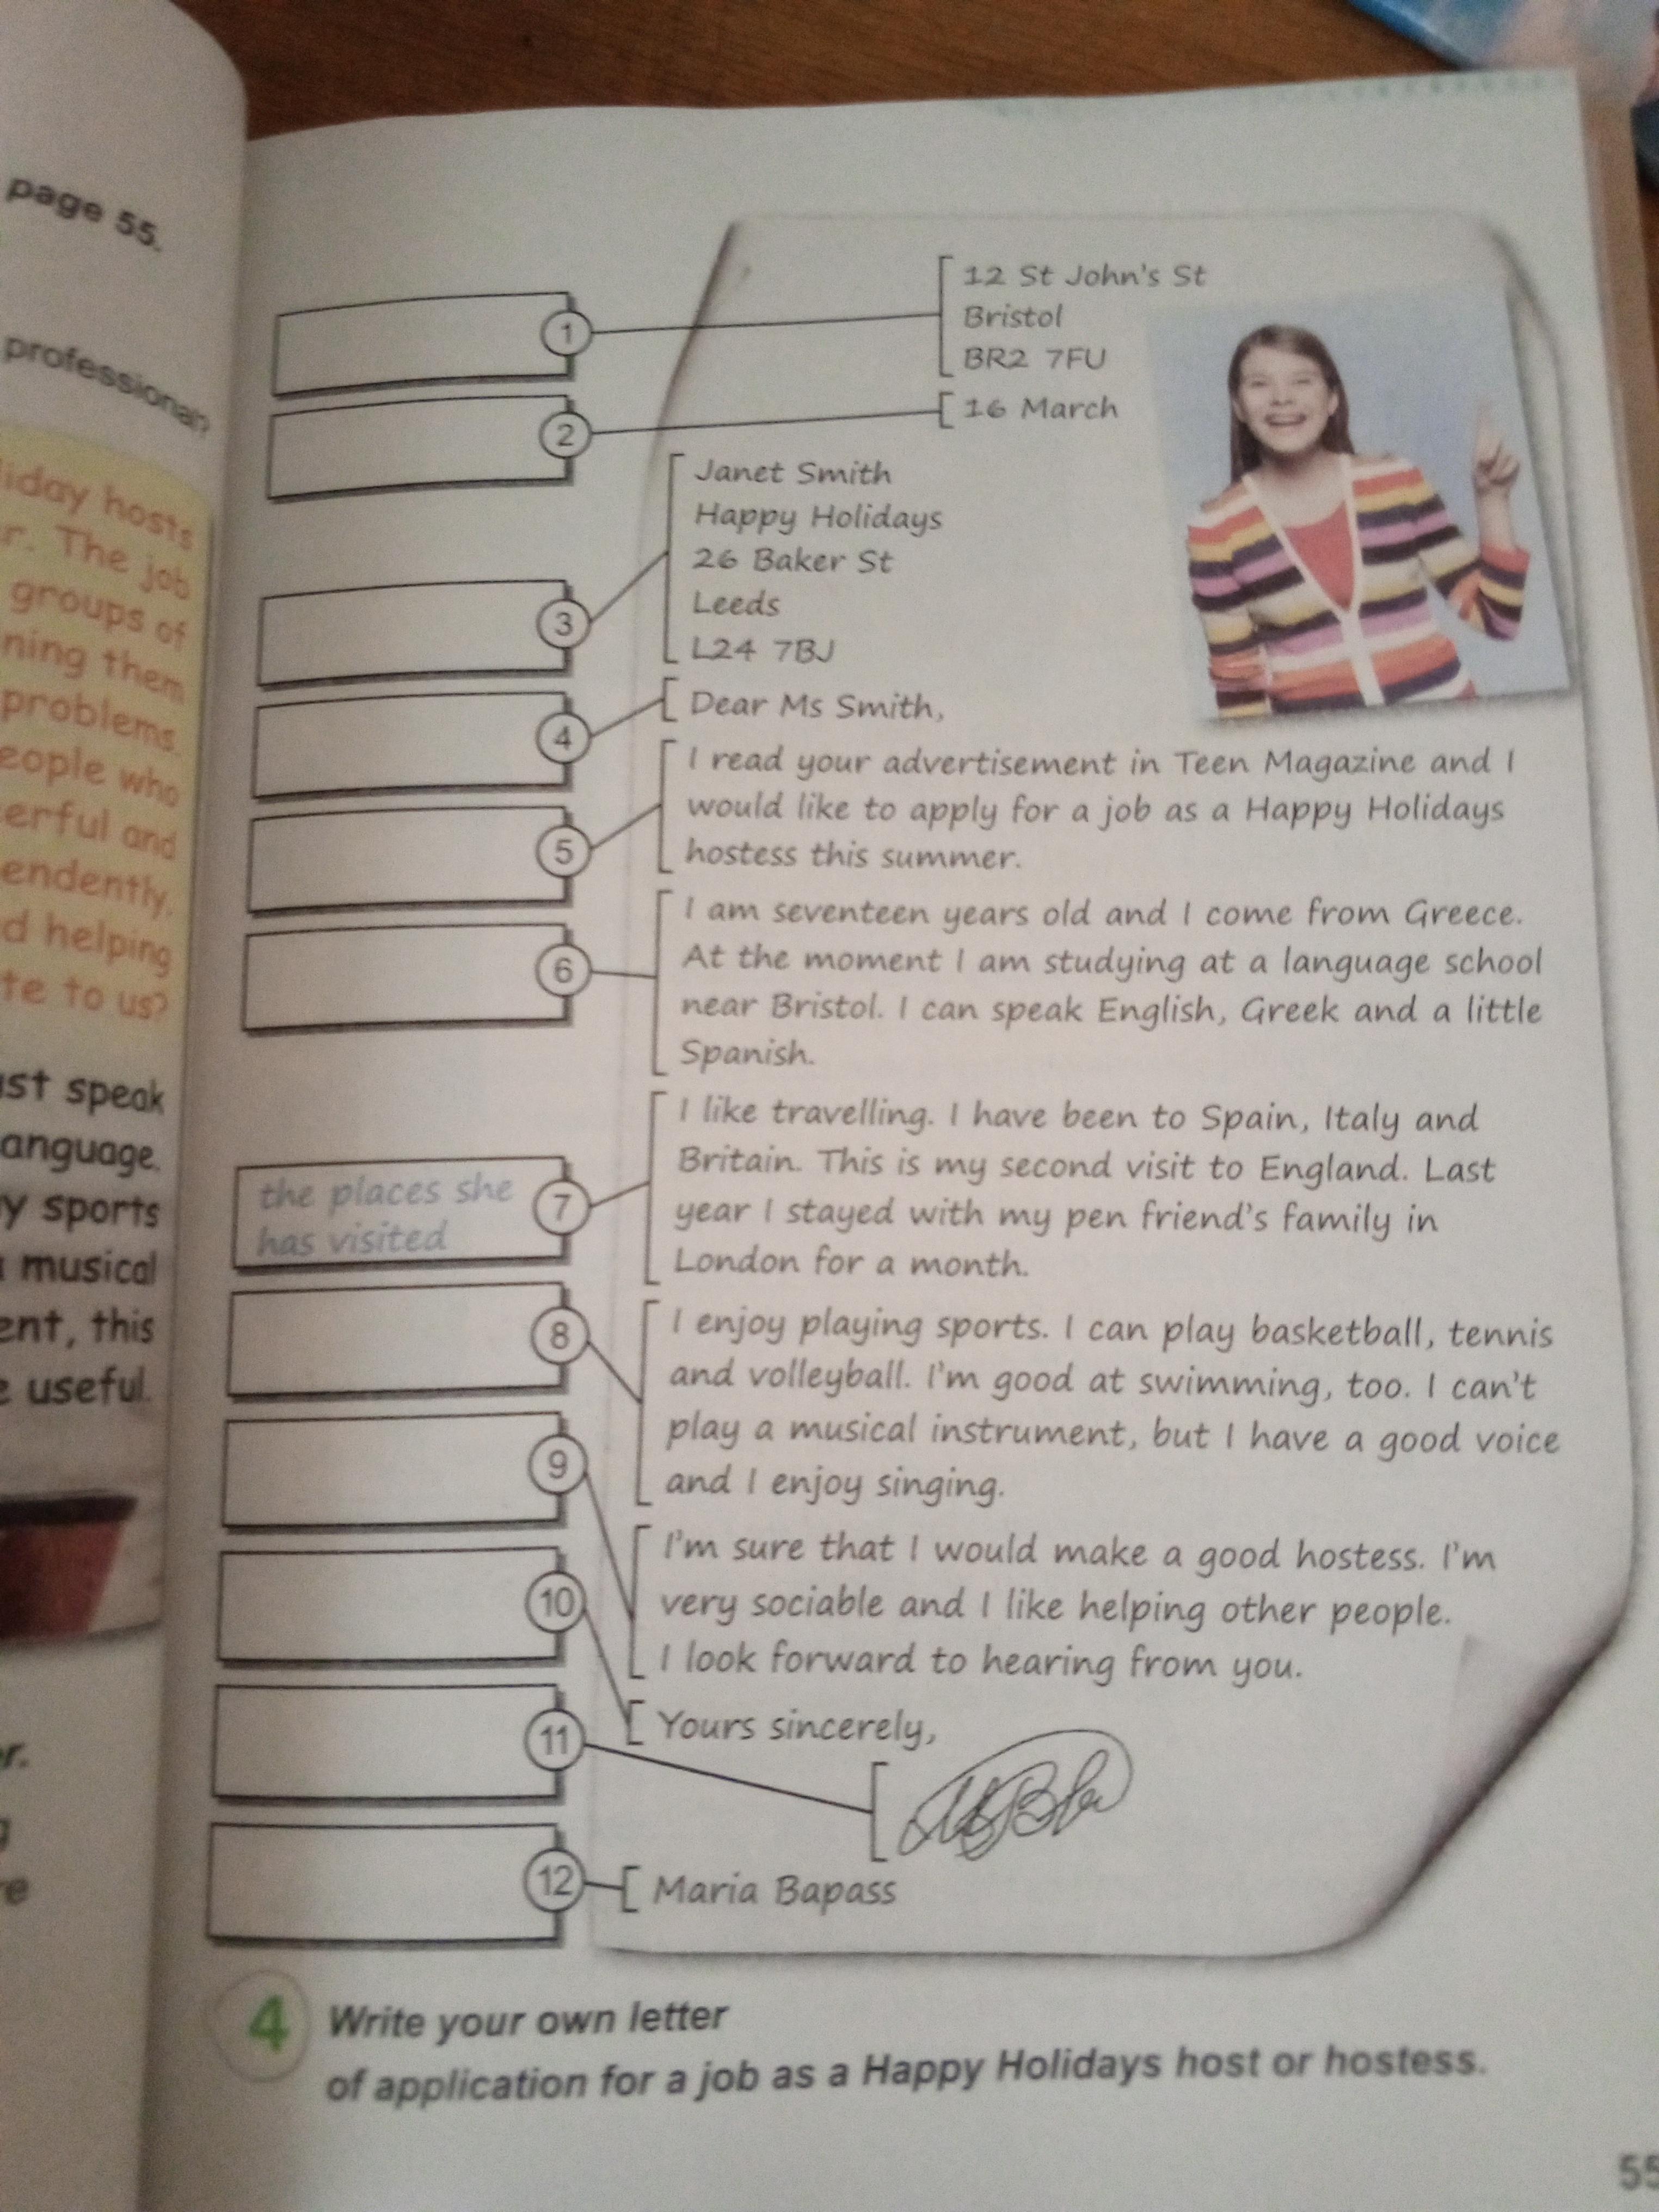 page 55.
professional?
liday hosts
r. The job
groups of
ning them
problems.
eople who
erful and
endently,
d helping
te to us?
ust speak
anguage.
y sports
musical
ent, this
useful.
r.
re
1
12 St John's St
Bristol
BR2 7FU
2
16 March
3
Janet Smith
Happy Holidays
26 Baker St
Leeds
L24 7BJ
4
Dear Ms Smith,
5
I read your advertisement in Teen Magazine and I
would like to apply for a job as a Happy Holidays
hostess this summer.
6
I am seventeen years old and I come from Greece.
At the moment I am studying at a language school
near Bristol. I can speak English, Greek and a little
Spanish.
the places she
has visited
7
I like travelling. I have been to Spain, Italy and
Britain. This is my second visit to England. Last
year I stayed with my pen friend's family in
London for a month.
8
I enjoy playing sports. I can play basketball, tennis
and volleyball. I'm good at swimming, too. I can't
play a musical instrument, but I have a good voice
and I enjoy singing.
9
I'm sure that I would make a good hostess. I'm
very sociable and I like helping other people.
I look forward to hearing from you.
10
Yours sincerely,
11
12
Maria Bapass
4 Write your own letter
of application for a job as a Happy Holidays host or hostess.
55